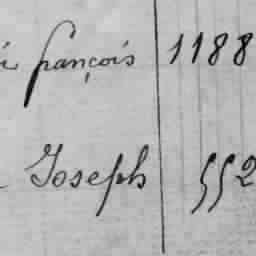 françois 1188
Joseph 552